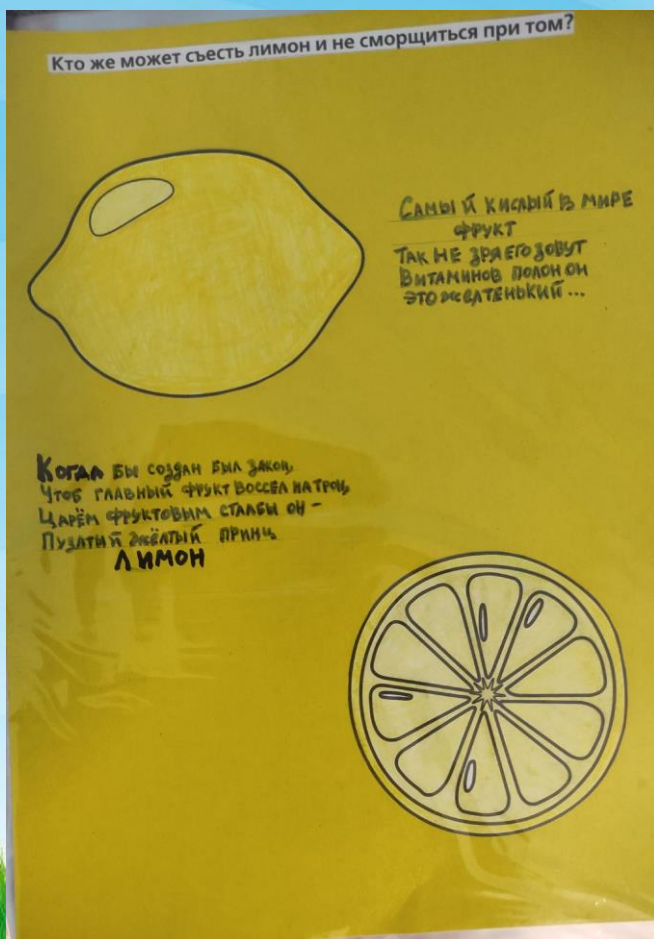 Кто же может съесть лимон и не сморщиться при том?
САМЫЙ КИСЛЫЙ В МИРЕ
ФРУКТ
ТАК НЕ ЗРЯ ЕГО ЗОВУТ
ВИТАМИНОВ ПОЛОН ОН
ЭТО ЖЕЛТЕНЬКИЙ...
КОГДА БЫ СОЗДАН БЫЛ ЗАКОН,
ЧТОБ ГЛАВНЫЙ ФРУКТ ВОССЕЛ НА ТРОН,
ЦАРЁМ ФРУКТОВЫМ СТАЛ БЫ ОН -
ПУЗАТЫЙ ЖЁЛТЫЙ ПРИНЦ
ЛИМОН